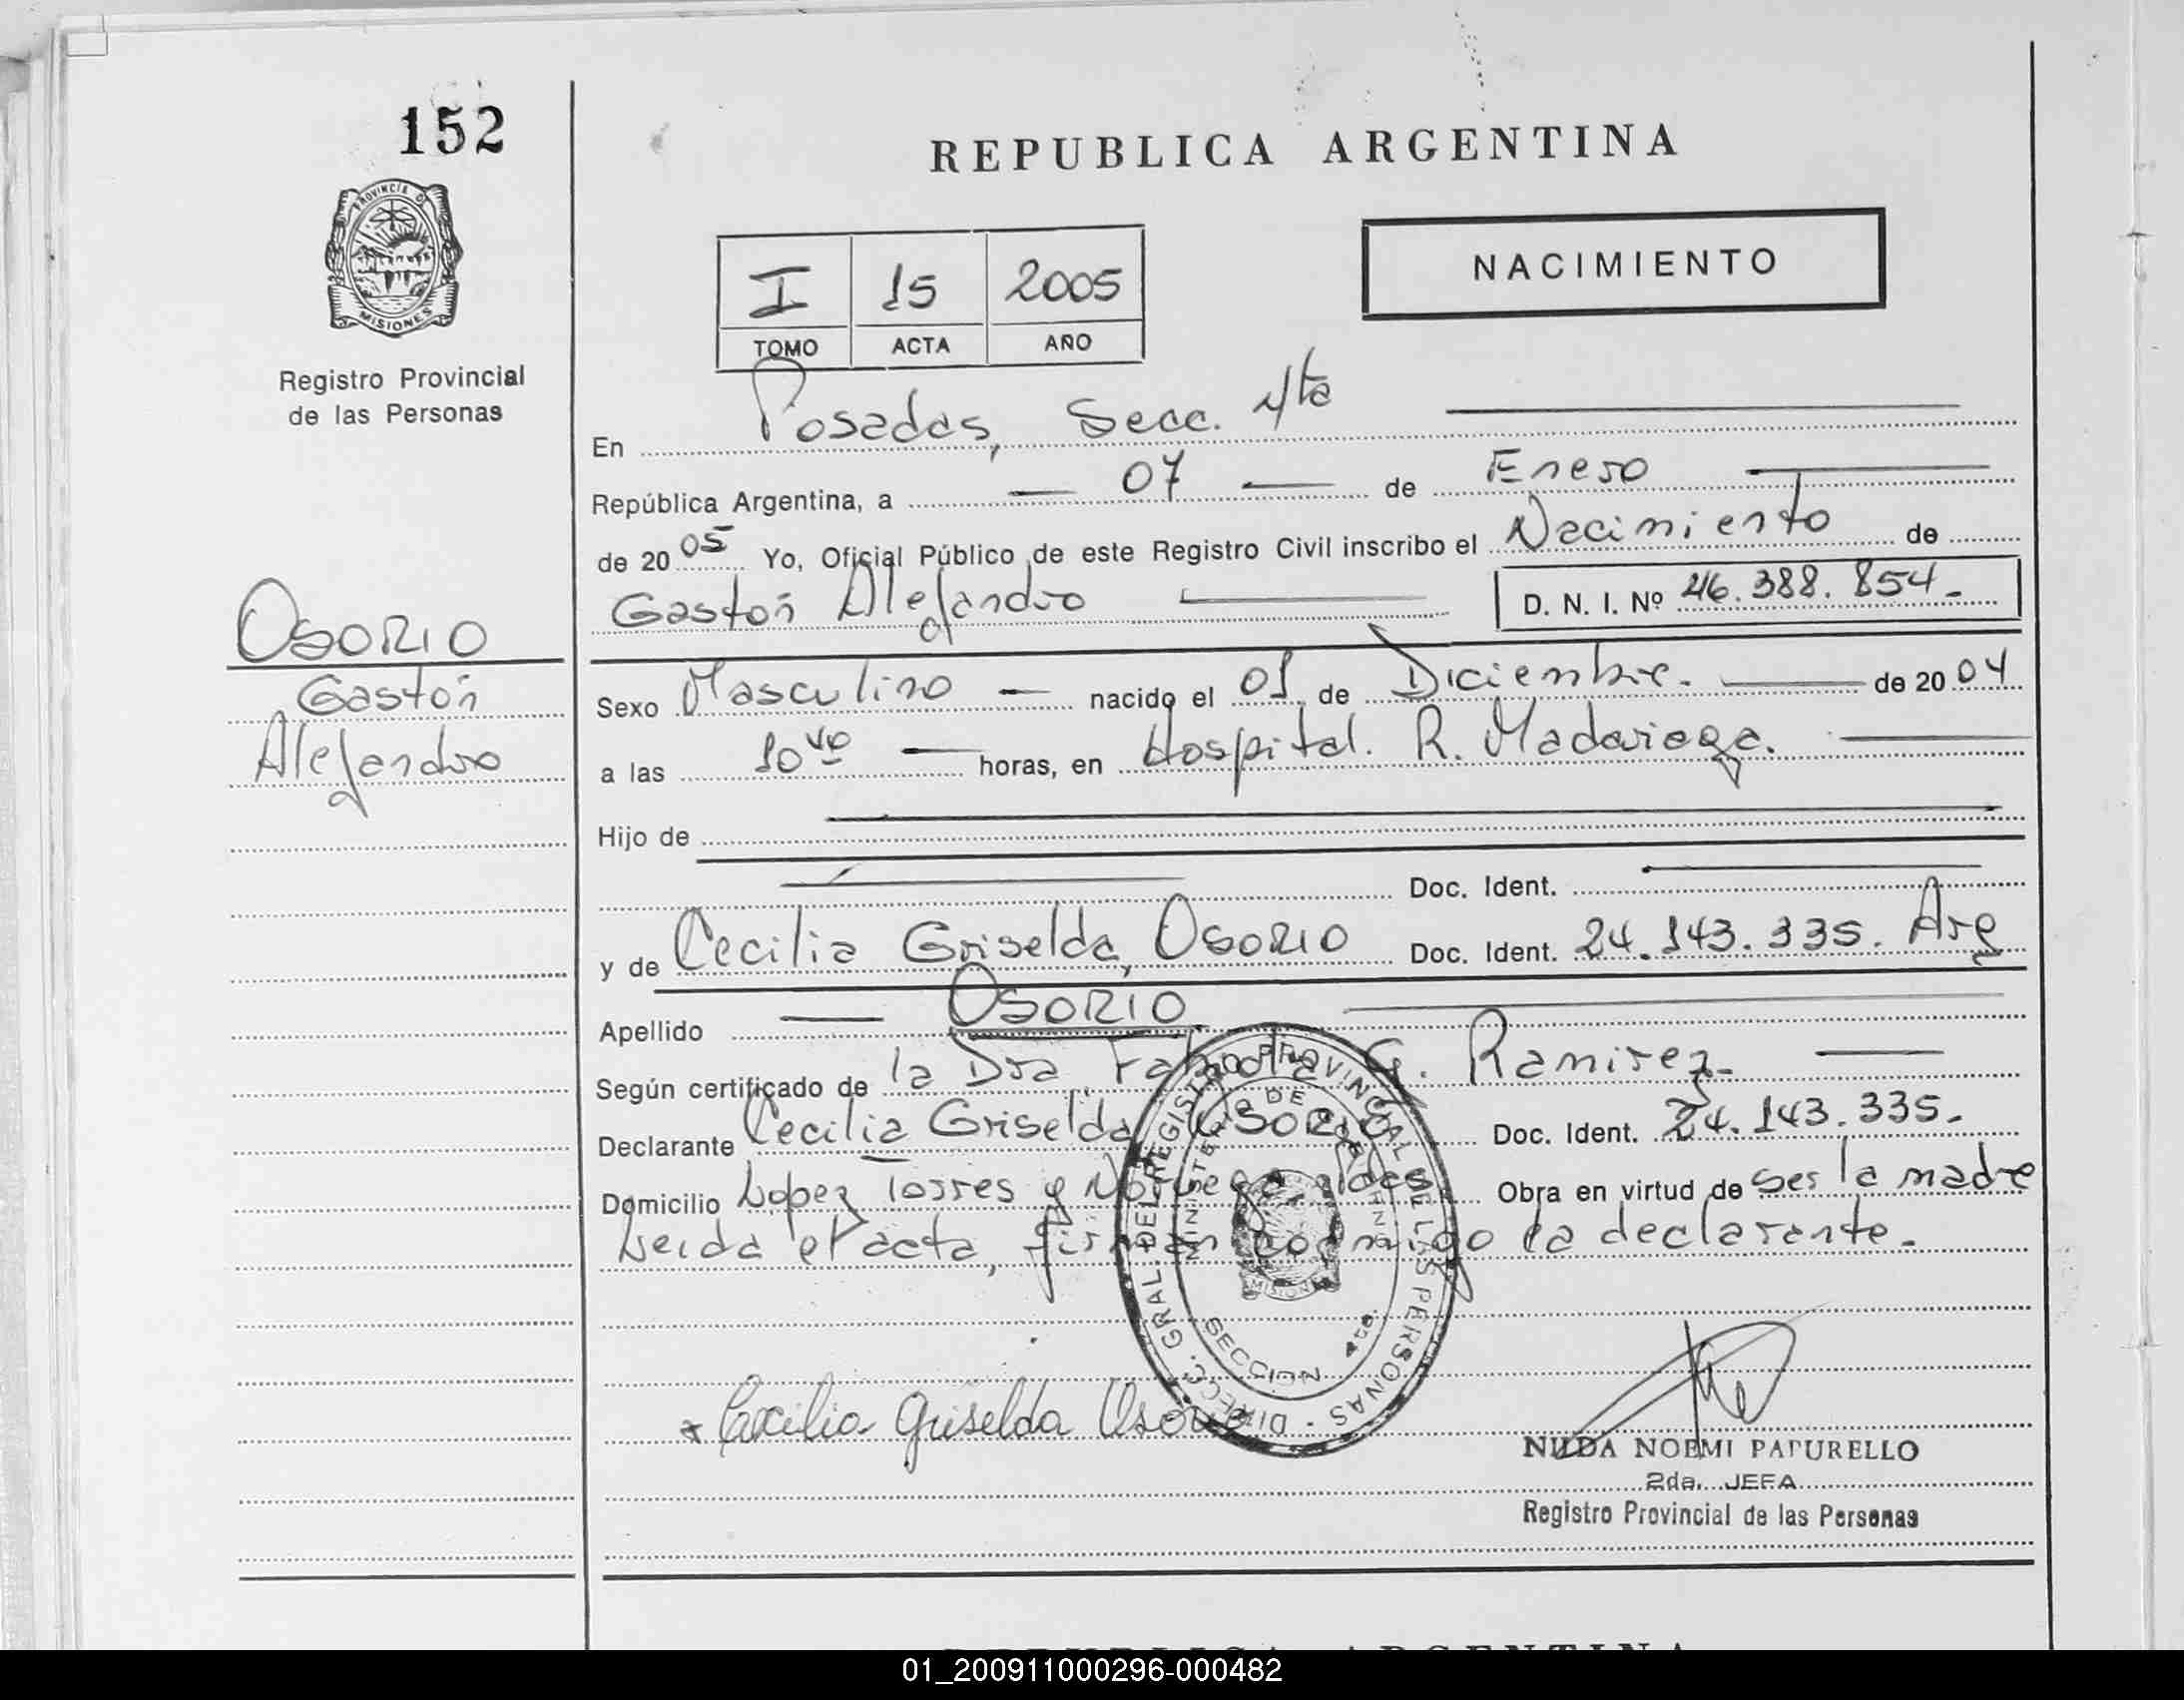 152
PROVINCIA DE
MISIONES
Registro Provincial
de las Personas
REPUBLICA ARGENTINA
NACIMIENTO
I 15 2005
TOMO ACTA AÑO
En Posadas, Secc. 4ta
República Argentina, a 07 de Enero
de 2005 Yo, Oficial Público de este Registro Civil inscribo el Nacimiento de
Gastón Alejandro D. N. I. Nº 46.388.854.
OSORIO
Gastón
Alejandro
Sexo Masculino nacido el 01 de Diciembre. de 2004
a las 10 horas, en Hospital. R. Madariaga.
Hijo de
Doc. Ident.
y de Cecilia Griselda, OSORIO Doc. Ident. 24.143.335. Arg
Apellido OSORIO
Según certificado de la Dra G. Ramirez
Declarante Cecilia Griselda OSORIO Doc. Ident. 24.143.335.
Domicilio Lopez Torres y Obra en virtud de ser la madre
Leida el acta, firman conmigo la declarante.
DIRECC. GRAL. DEL REGISTRO PROVINCIAL DE LAS PERSONAS
MINISTERIO DE GOBIERNO
MISIONES
SECCION 4ta.
Cecilia Griselda Osorio
NILDA NOEMI PAPURELLO
2da. JEFA
Registro Provincial de las Personas
REPUBLICA ARGENTINA
01_200911000296-000482